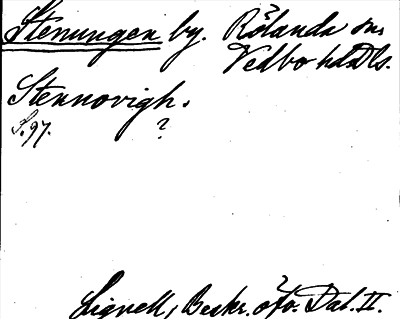 Stenungen by. Rölanda sn,
Vedbo hd Dls.
Stennovigh.
S. 97. ?
Lignell, Beskr. öfv. Dal. II.